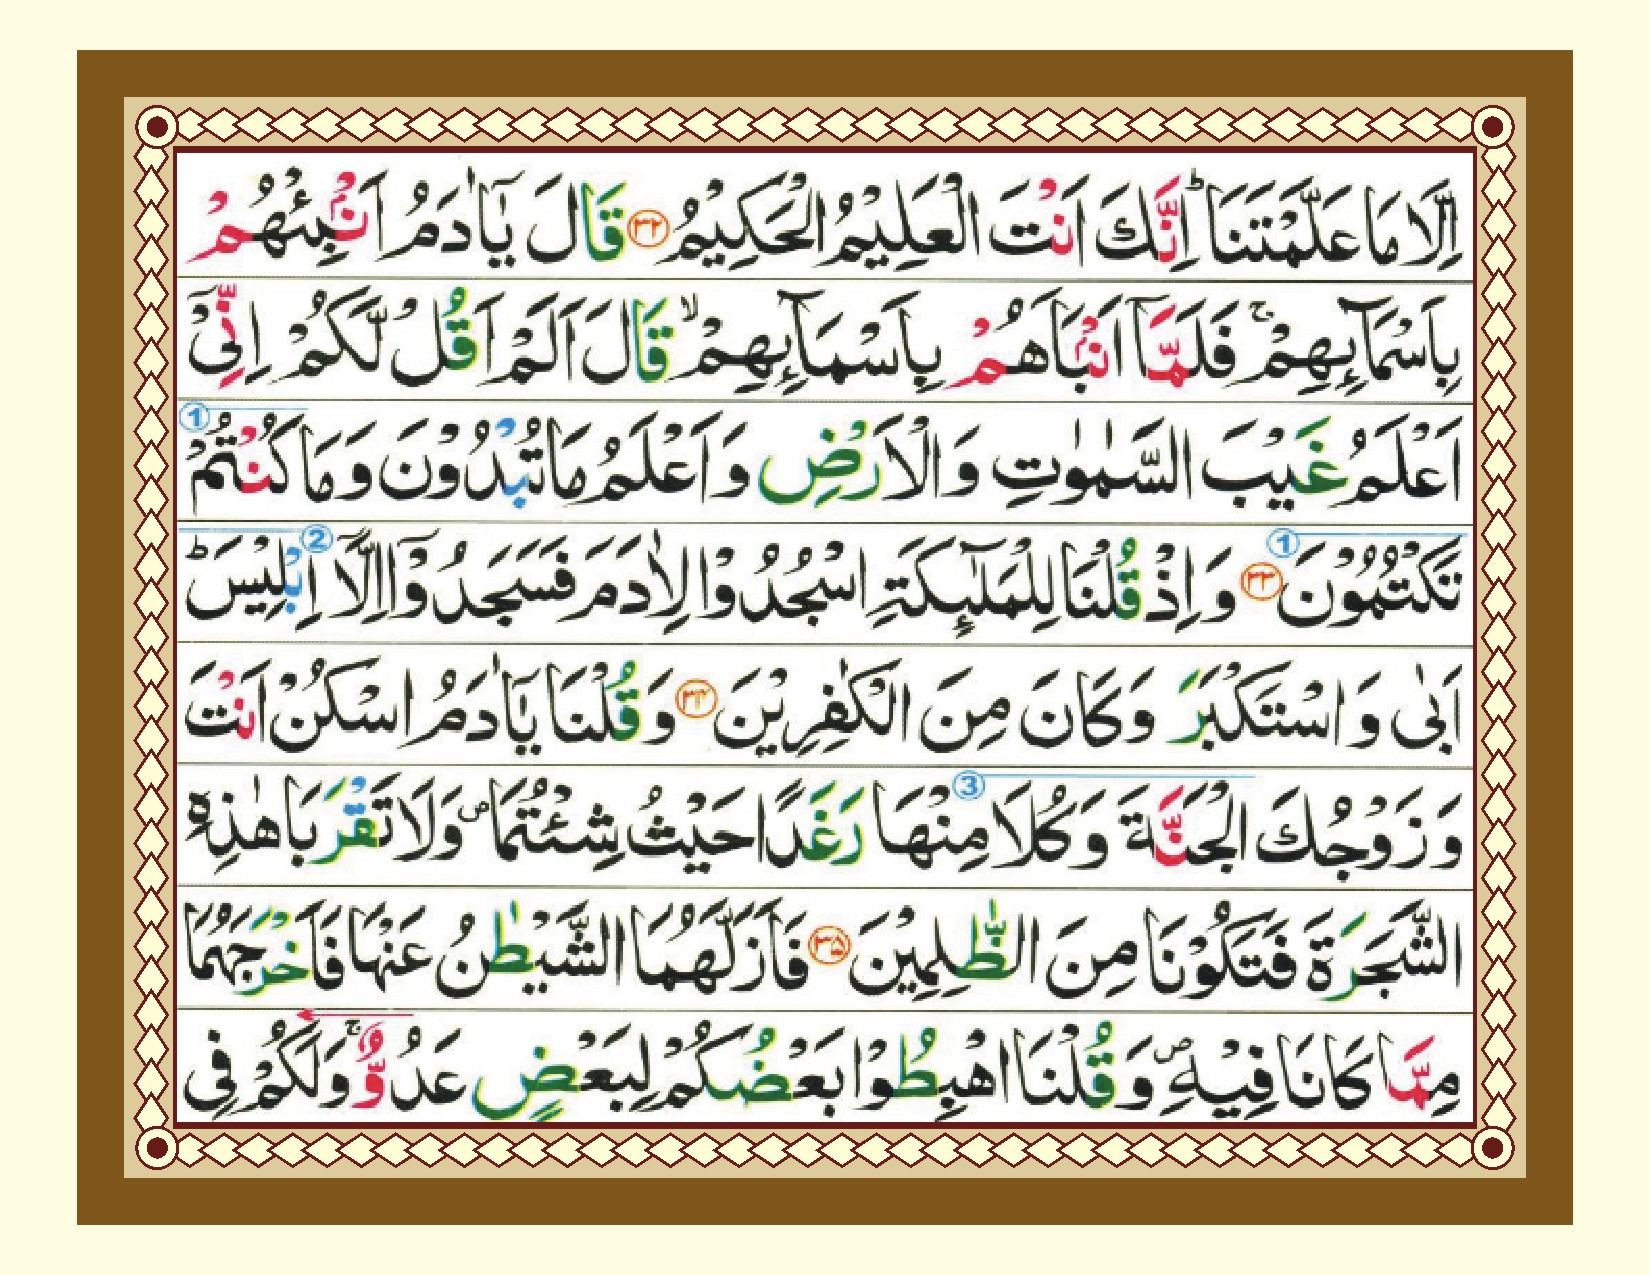 اِلَّا مَا عَلَّمْتَنَا ؕ اِنَّكَ اَنْتَ الْعَلِيْمُ الْحَكِيْمُ ﴿۳۲﴾ قَالَ يٰۤاٰدَمُ اَنْۢبِئْهُمْ
بِاَسْمَآئِهِمْ ۚ فَلَمَّاۤ اَنْۢبَاَهُمْ بِاَسْمَآئِهِمْ ۙ قَالَ اَلَمْ اَقُلْ لَّكُمْ اِنِّیْۤ
① اَعْلَمُ غَيْبَ السَّمٰوٰتِ وَالْاَرْضِ وَاَعْلَمُ مَا تُبْدُوْنَ وَمَا كُنْتُمْ
تَكْتُمُوْنَ ① ﴿۳۳﴾ وَاِذْ قُلْنَا لِلْمَلٰٓئِكَةِ اسْجُدُوْا لِاٰدَمَ فَسَجَدُوْۤا اِلَّاۤ ② اِبْلِيْسَ ؕ
اَبٰی وَاسْتَكْبَرَ وَكَانَ مِنَ الْكٰفِرِيْنَ ﴿۳۴﴾ وَقُلْنَا يٰۤاٰدَمُ اسْكُنْ اَنْتَ
وَزَوْجُكَ الْجَنَّةَ وَكُلَا ③ مِنْهَا رَغَدًا حَيْثُ شِئْتُمَا ۪ وَلَا تَقْرَبَا هٰذِهِ
الشَّجَرَةَ فَتَكُوْنَا مِنَ الظّٰلِمِيْنَ ﴿۳۵﴾ فَاَزَلَّهُمَا الشَّيْطٰنُ عَنْهَا فَاَخْرَجَهُمَا
مِمَّا كَانَا فِيْهِ ۪ وَقُلْنَا اهْبِطُوْا بَعْضُكُمْ لِبَعْضٍ عَدُوٌّ ۚ وَلَكُمْ فِی